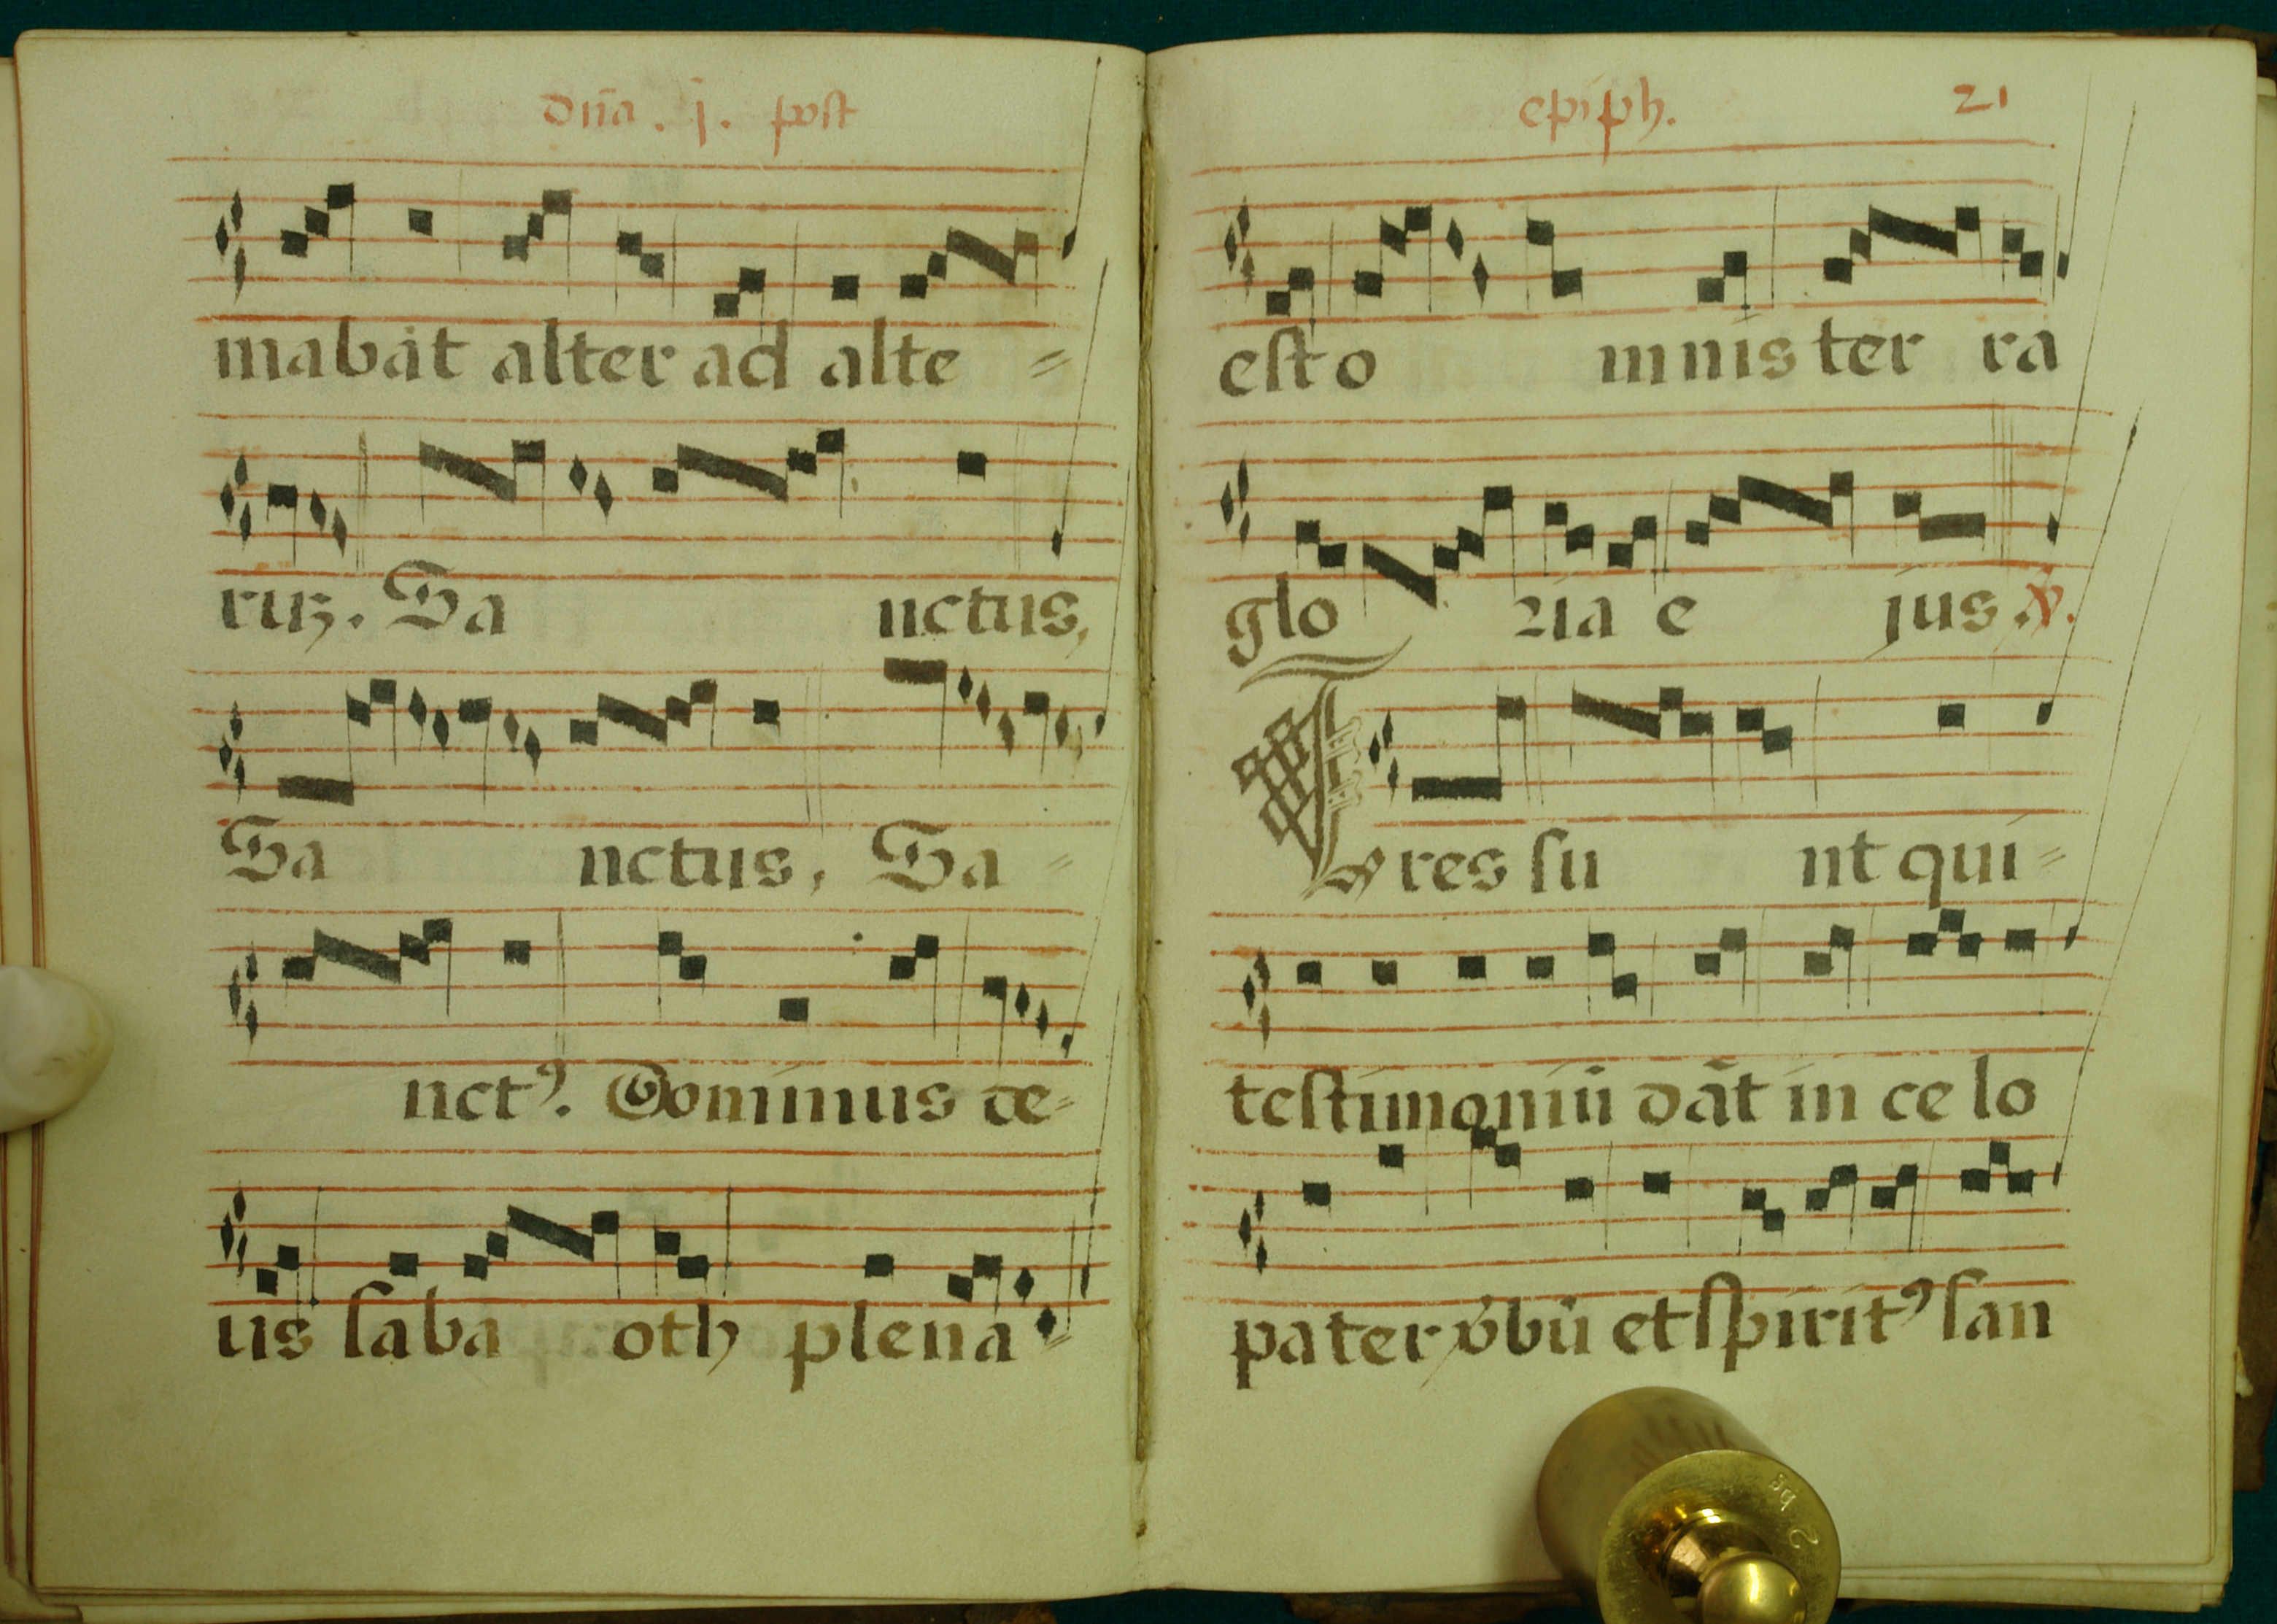 dña . j. post
mabat alter ad alte =
ruȝ. Sa nctus,
Sa nctus, Sa =
nctꝰ. Dominus de=
us ſa ba oth plena =
epiph. 21
eſt o mnis ter ra
glo ꝛia e jus ℣.
Tres ſu nt qui =
teſtimoniū dāt in ce lo
pa ter v̄bū et ſpiritꝰ ſan